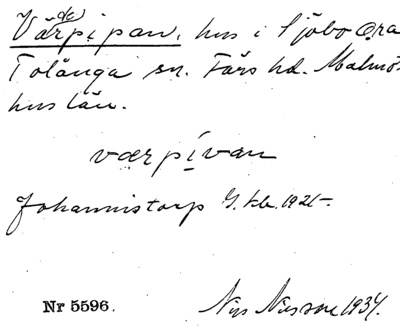 Värpipan, hus i Sjöbo Ora
de
Tolånga sn. Färs hd. Malmö-
hus län.
værpívan
Johannistorp G. kb. 1921-.
Nr 5596.
Nils Nilsson 1934.